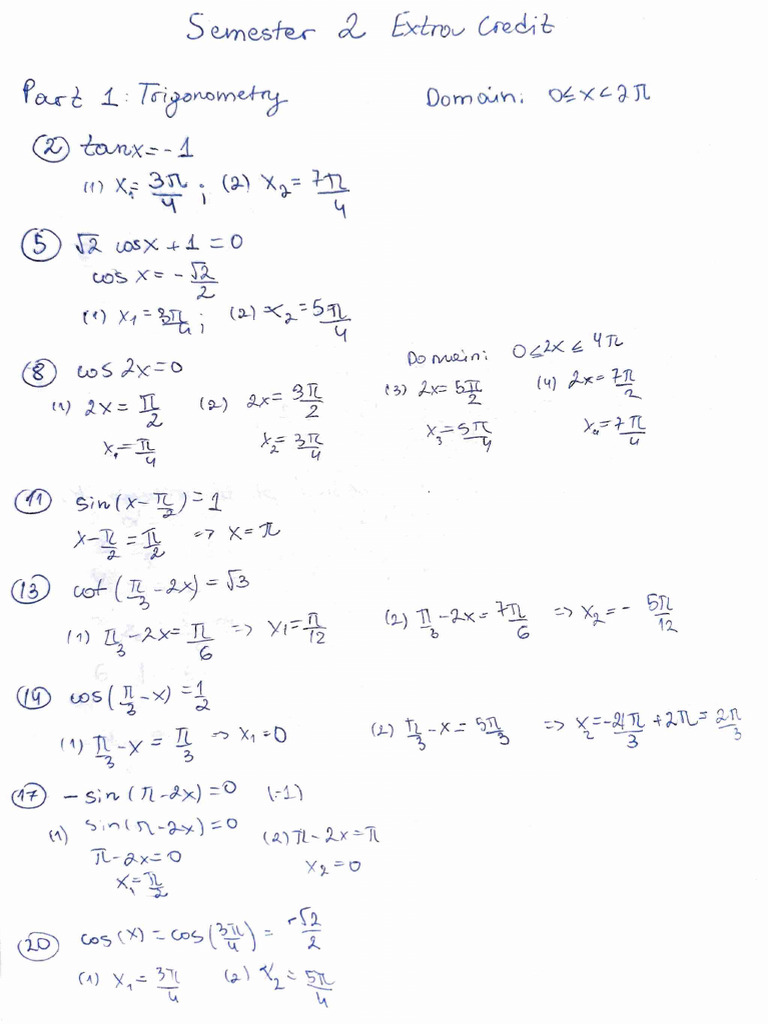 Semester 2 Extra Credit
Part 1: Trigonometry Domain: 0≤x<2π
② tanx=-1
(1) x₁=3π/4; (2) x₂=7π/4
⑤ √2 cosx+1=0
cos x=-√2/2
(1) x₁=3π/4; (2) x₂=5π/4
⑧ cos 2x=0 Domain: 0≤2x≤4π
(1) 2x=π/2 (2) 2x=3π/2 (3) 2x=5π/2 (4) 2x=7π/2
x₁=π/4 x₂=3π/4 x₃=5π/4 x₄=7π/4
⑪ sin(x-π/2)=1
x-π/2=π/2 => x=π
⑬ cot(π/3-2x)=√3
(1) π/3-2x=π/6 => x₁=π/12 (2) π/3-2x=7π/6 => x₂=-5π/12
⑭ cos(π/3-x)=1/2
(1) π/3-x=π/3 => x₁=0 (2) π/3-x=5π/3 => x₂=-4π/3+2π=2π/3
⑰ -sin(π-2x)=0 (-1)
(1) sin(π-2x)=0 (2) π-2x=π
π-2x=0 x₂=0
x₁=π/2
⑳ cos(x)=cos(3π/4)=-√2/2
(1) x₁=3π/4 (2) x₂=5π/4